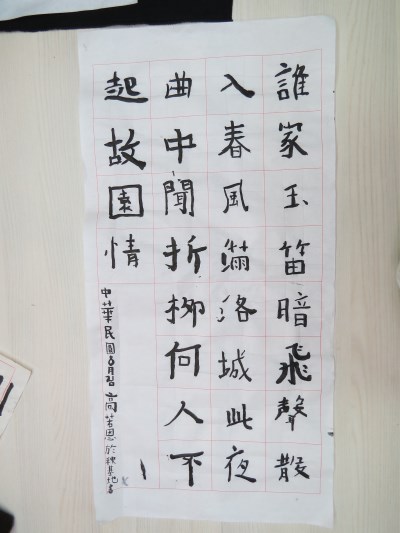 誰家玉笛暗飛聲散
入春風滿洛城此夜
曲中聞折柳何人不
起故園情
中華民國 月習 高 恩 於